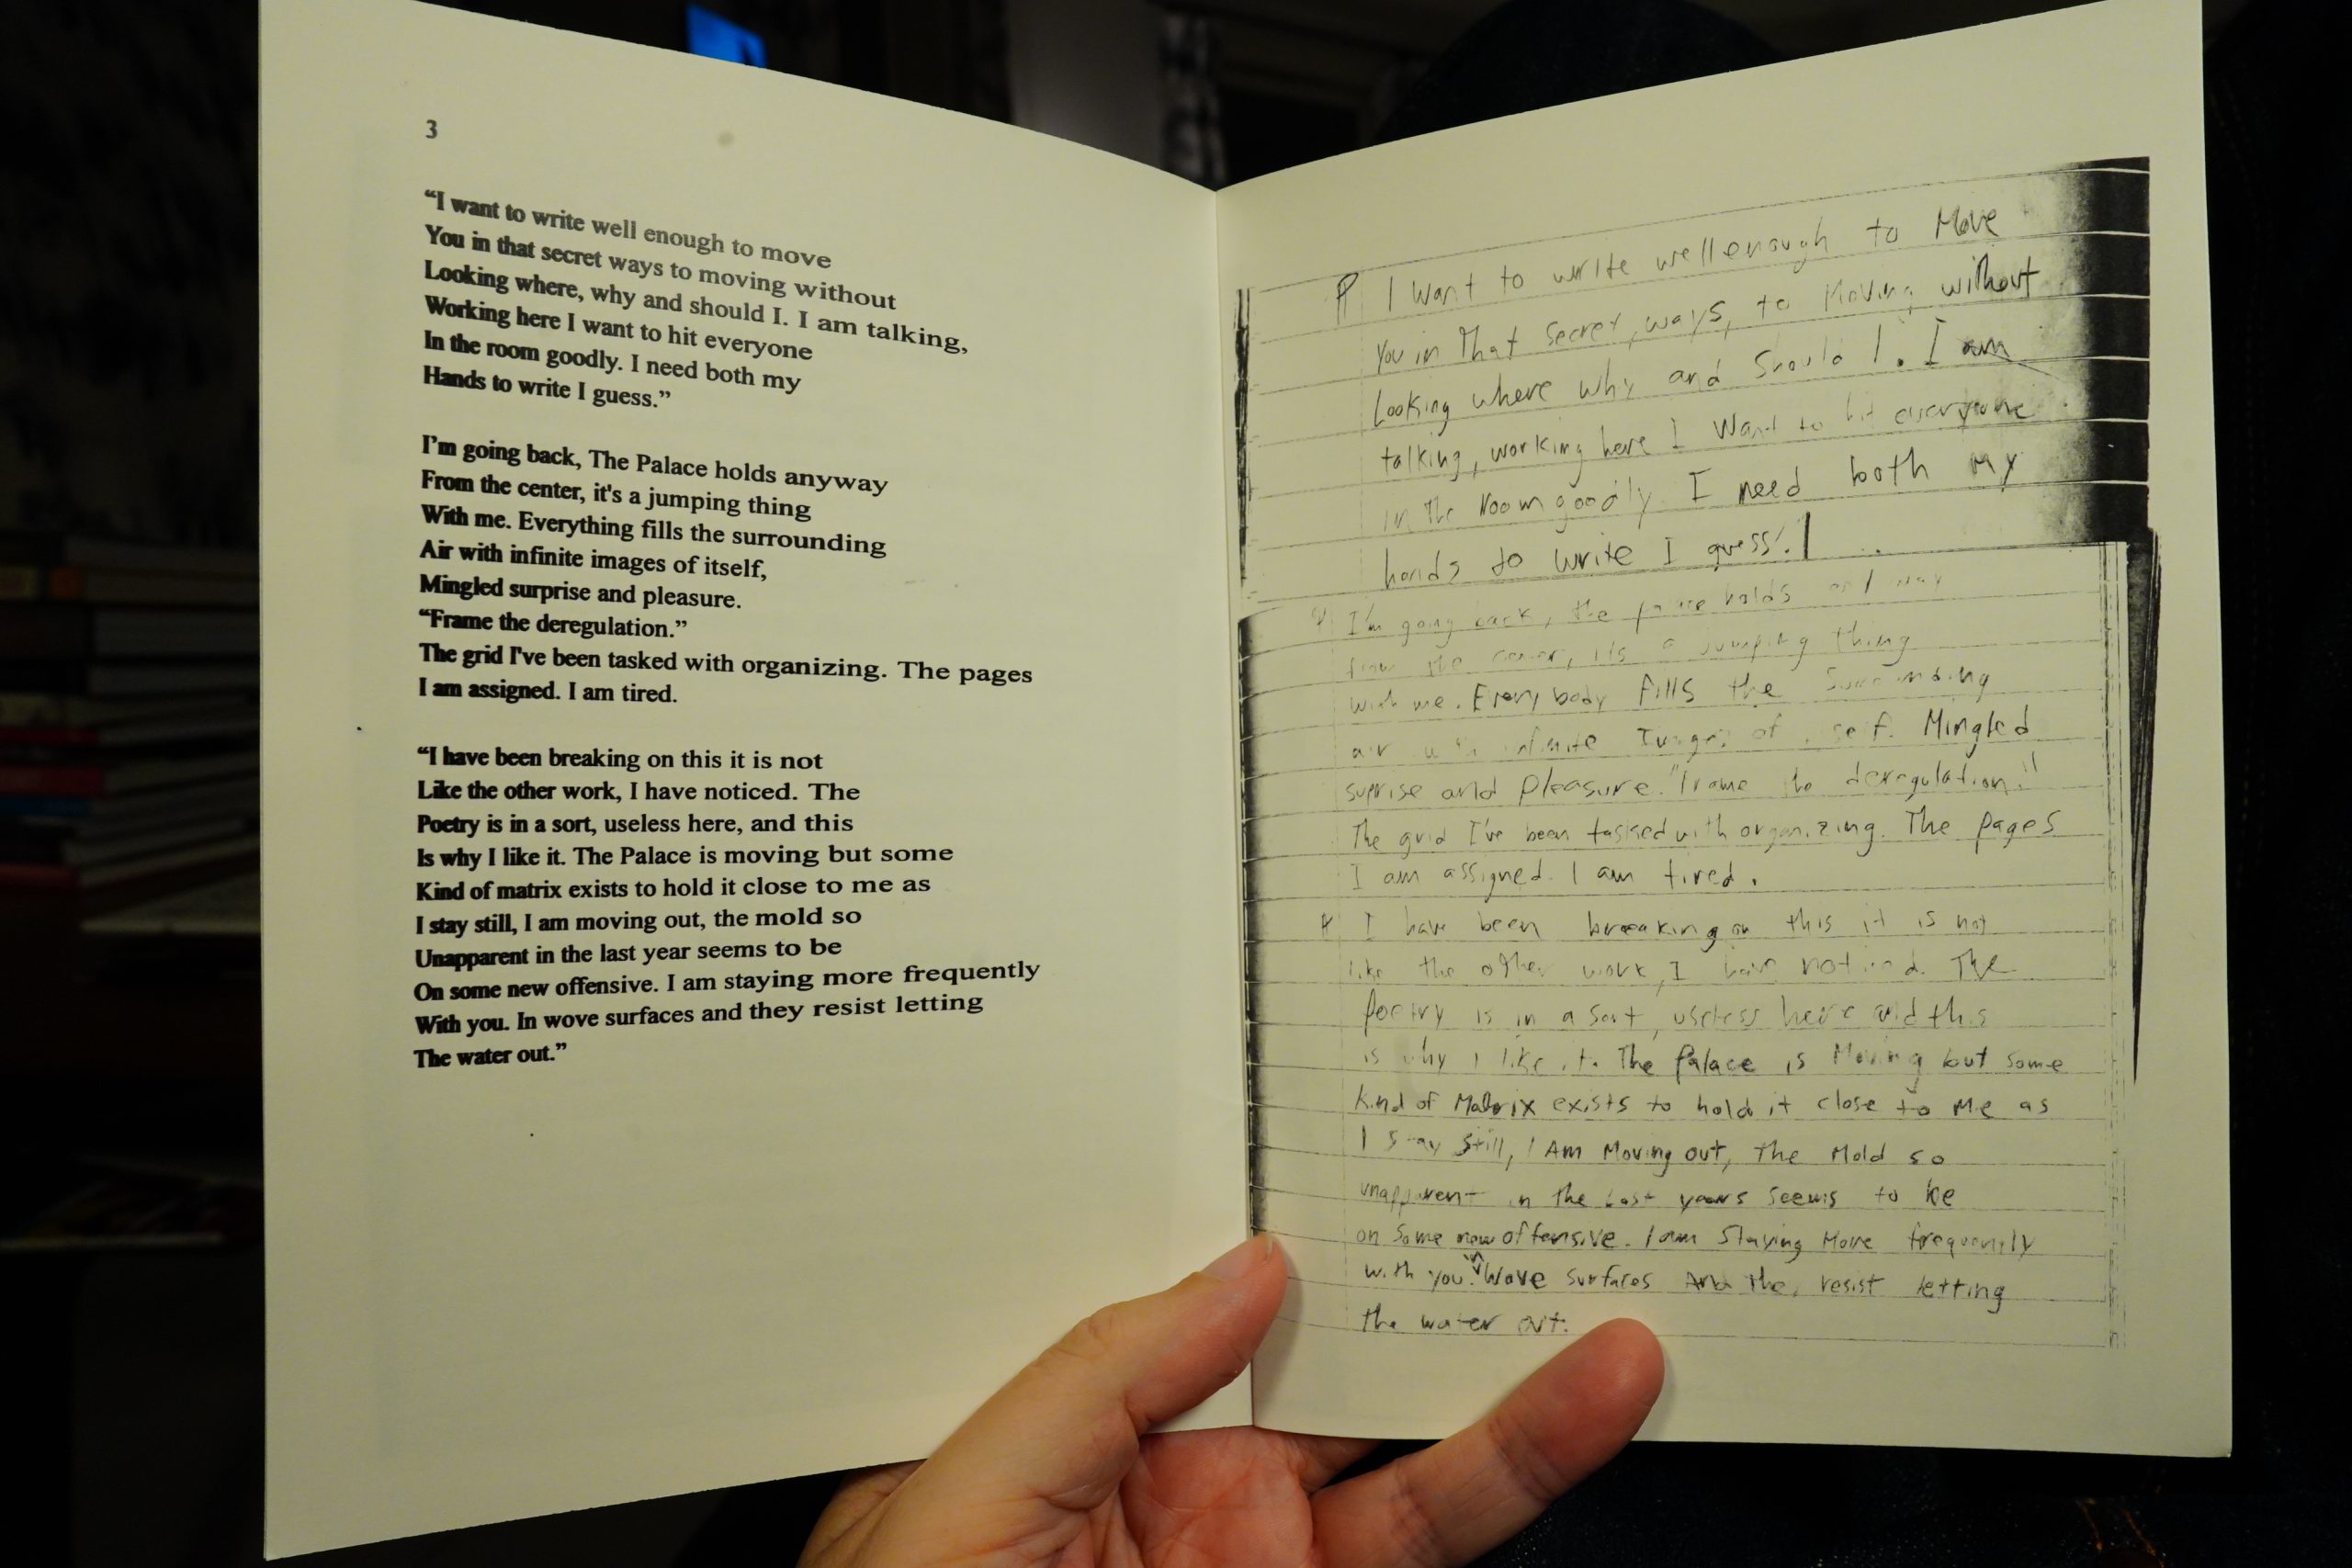 3
“I want to write well enough to move
You in that secret ways to moving without
Looking where, why and should I. I am talking,
Working here I want to hit everyone
In the room goodly. I need both my
Hands to write I guess.”
I’m going back, The Palace holds anyway
From the center, it's a jumping thing
With me. Everything fills the surrounding
Air with infinite images of itself,
Mingled surprise and pleasure.
“Frame the deregulation.”
The grid I've been tasked with organizing. The pages
I am assigned. I am tired.
“I have been breaking on this it is not
Like the other work, I have noticed. The
Poetry is in a sort, useless here, and this
Is why I like it. The Palace is moving but some
Kind of matrix exists to hold it close to me as
I stay still, I am moving out, the mold so
Unapparent in the last year seems to be
On some new offensive. I am staying more frequently
With you. In wove surfaces and they resist letting
The water out.”
I want to write well enough to Move
You in That Secret, ways, to Moving without
Looking where why and Should I. I am
talking, working here I Want to hit everyone
in the Room goodly I need both my
hands to write I guess.
I'm going back, the palace holds
from the , its a jumping thing
with me. Everybody fills the Surrounding
air with infinite Images of self. Mingled
suprise and pleasure. "Frame the deregulation."
The grid I've been tasked with organizing. The pages
I am assigned. I am tired.
I have been breaking on this it is not
like the other work, I have noticed. The
poetry is in a sort, useless here and this
is why I like it. The Palace is Moving but some
kind of Matrix exists to hold it close to Me as
I stay still, I Am Moving out, The Mold so
unapparent in the Last years seems to be
on some new offensive. I am Staying More frequently
with you. in Wove surfaces And the, resist letting
the water out.